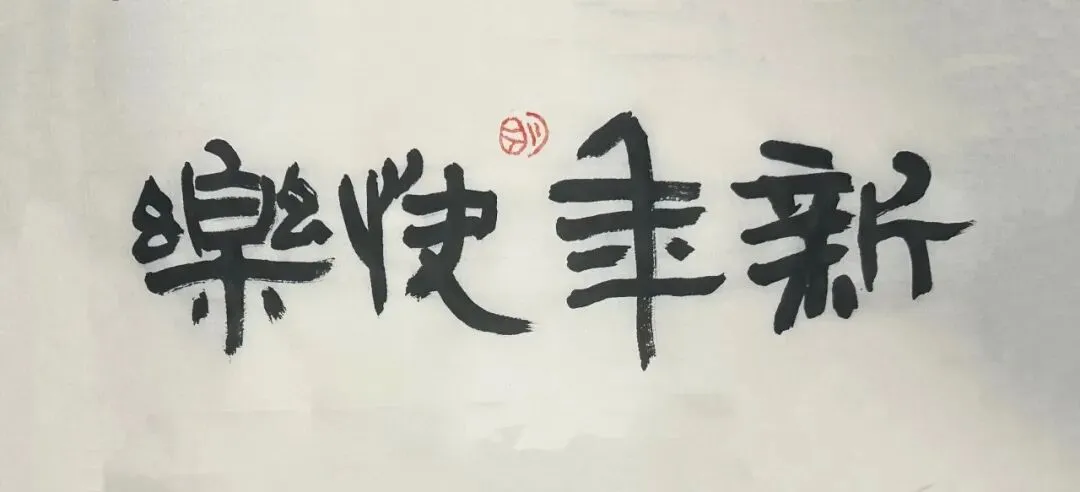 新年快樂